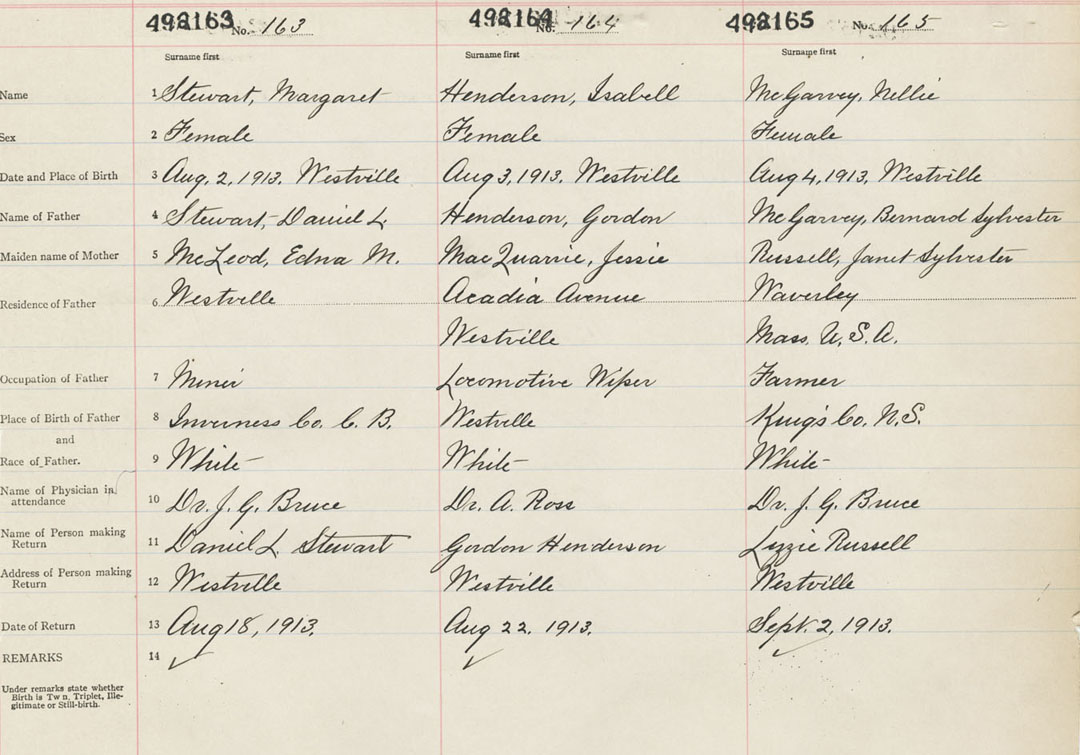 493163 No. 163 493164 No. 164 493165 No. 165
Surname first Surname first Surname first
Name 1 Stewart, Margaret Henderson, Isabell McGarvey, Nellie
Sex 2 Female Female Female
Date and Place of Birth 3 Aug. 2, 1913. Westville Aug 3, 1913, Westville Aug 4, 1913, Westville
Name of Father 4 Stewart, Daniel L. Henderson, Gordon McGarvey, Bernard Sylvester
Maiden name of Mother 5 McLeod, Edna M. MacQuarrie, Jessie Russell, Janet Sylvester
Residence of Father 6 Westville Acadia Avenue Waverley
Westville Mass. U.S.A.
Occupation of Father 7 Miner Locomotive Wiper Farmer
Place of Birth of Father 8 Inverness Co. C.B. Westville King's Co. N.S.
and
Race of Father. 9 White White White
Name of Physician in attendance 10 Dr. J. G. Bruce Dr. A. Ross Dr. J. G. Bruce
Name of Person making Return 11 Daniel L. Stewart Gordon Henderson Lizzie Russell
Address of Person making Return 12 Westville Westville Westville
Date of Return 13 Aug 18, 1913. Aug 22, 1913. Sept. 2, 1913.
REMARKS 14
Under remarks state whether
Birth is Twn, Triplet, Ille-
gitimate or Still-birth.